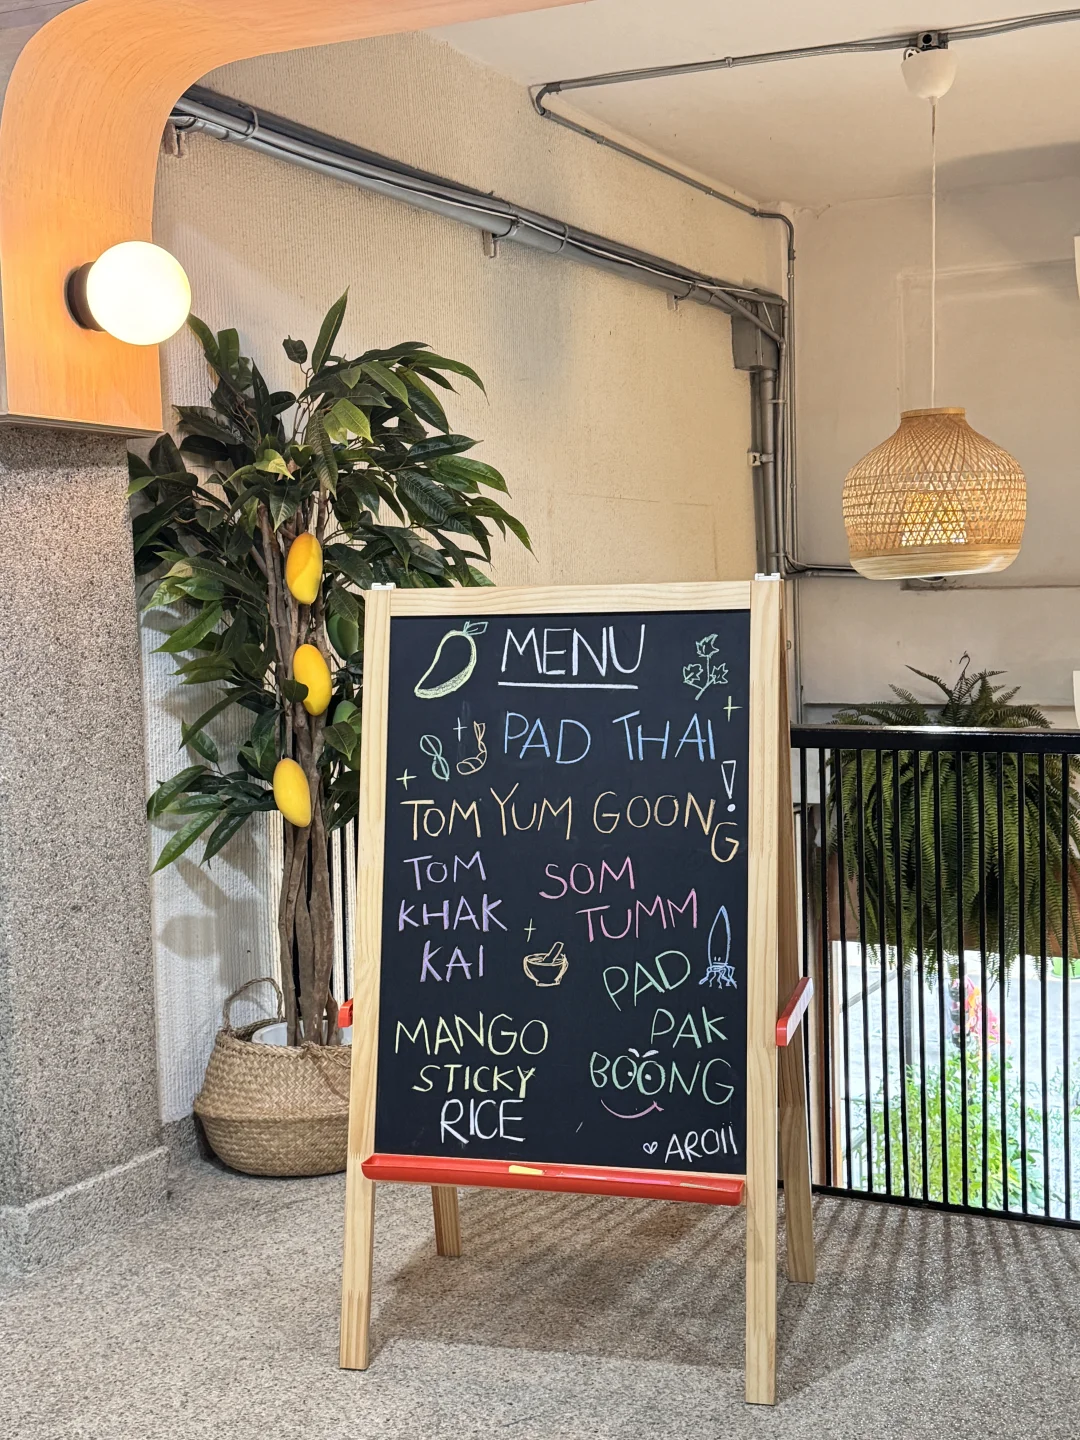 MENU
PAD THAI
TOM YUM GOONG!
TOM
KHAK
KAI
SOM
TUMM
PAD
PAK
BOONG
MANGO
STICKY
RICE
♡ AROII